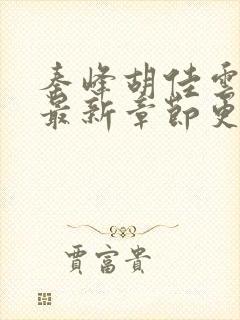 秦峰胡佳雲
最新章節更
賈富貴